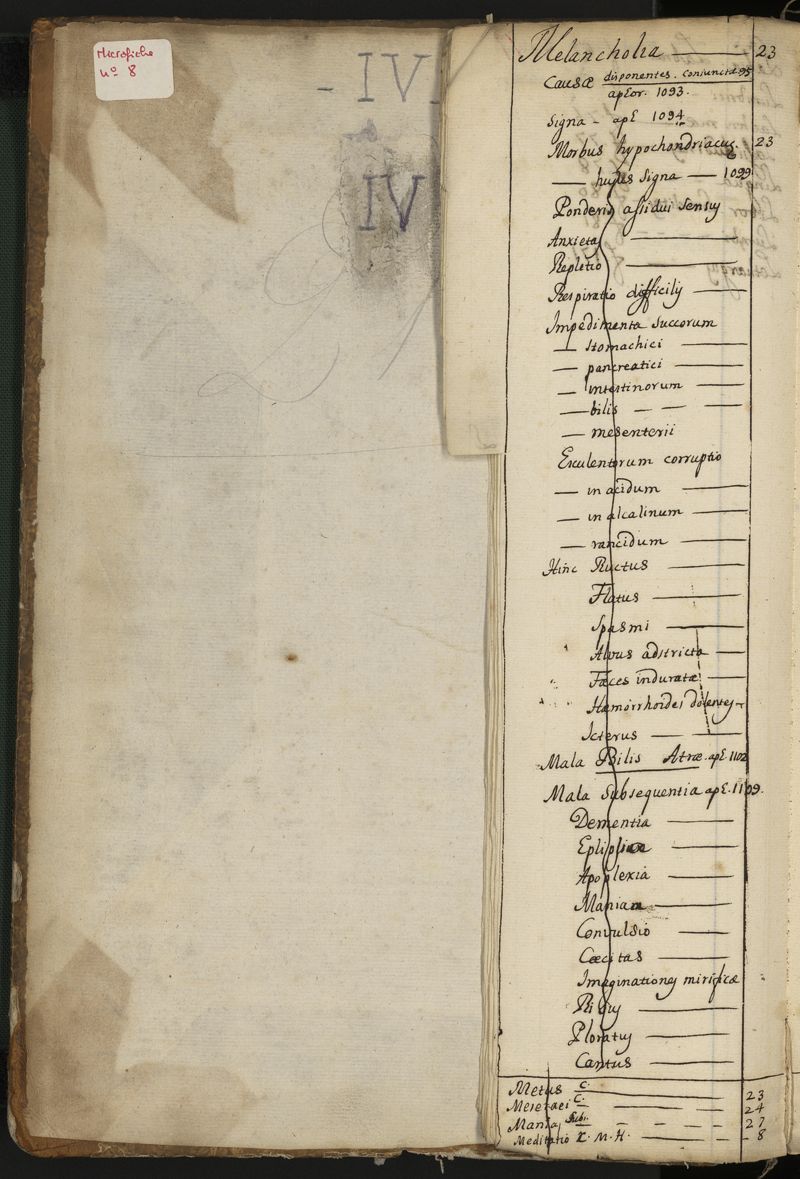 Microfiche
nº 8
- IV
IV
Melancholia — 23
Causæ disponentes. Conjunctæ 95
aphor. 1093.
Signa - aph 1094
Morbus hypochondriacus. 23
— hujus Signa — 1099
Ponderis assidui sensus
Anxietas —
Repletio —
Respiratio difficilis —
Impedimenta succorum
— stomachici —
— pancreatici —
— intestinorum —
— bilis — — —
— mesenterii
Esculentorum corruptio
— in acidum —
— in alcalinum —
— rancidum —
Hinc Ructus —
Flatus —
Spasmi —
Alvus adstricta —
Fæces induratæ —
Hæmorrhoides dolentes -
Icterus — —
Mala Bilis Atræ. aph. 1102
Mala Subsequentia aph. 1109.
Dementia —
Eplipsiæ —
Apoplexia —
Maniam —
Convulsio —
Cæcitas —
Imaginationes mirificæ
Risus —
Ploratus —
Cantus —
Metus C. — 23
Meseraei C. — — — — 24
Manias — — — — 27
Meditatio X. M. H. — — — — 8